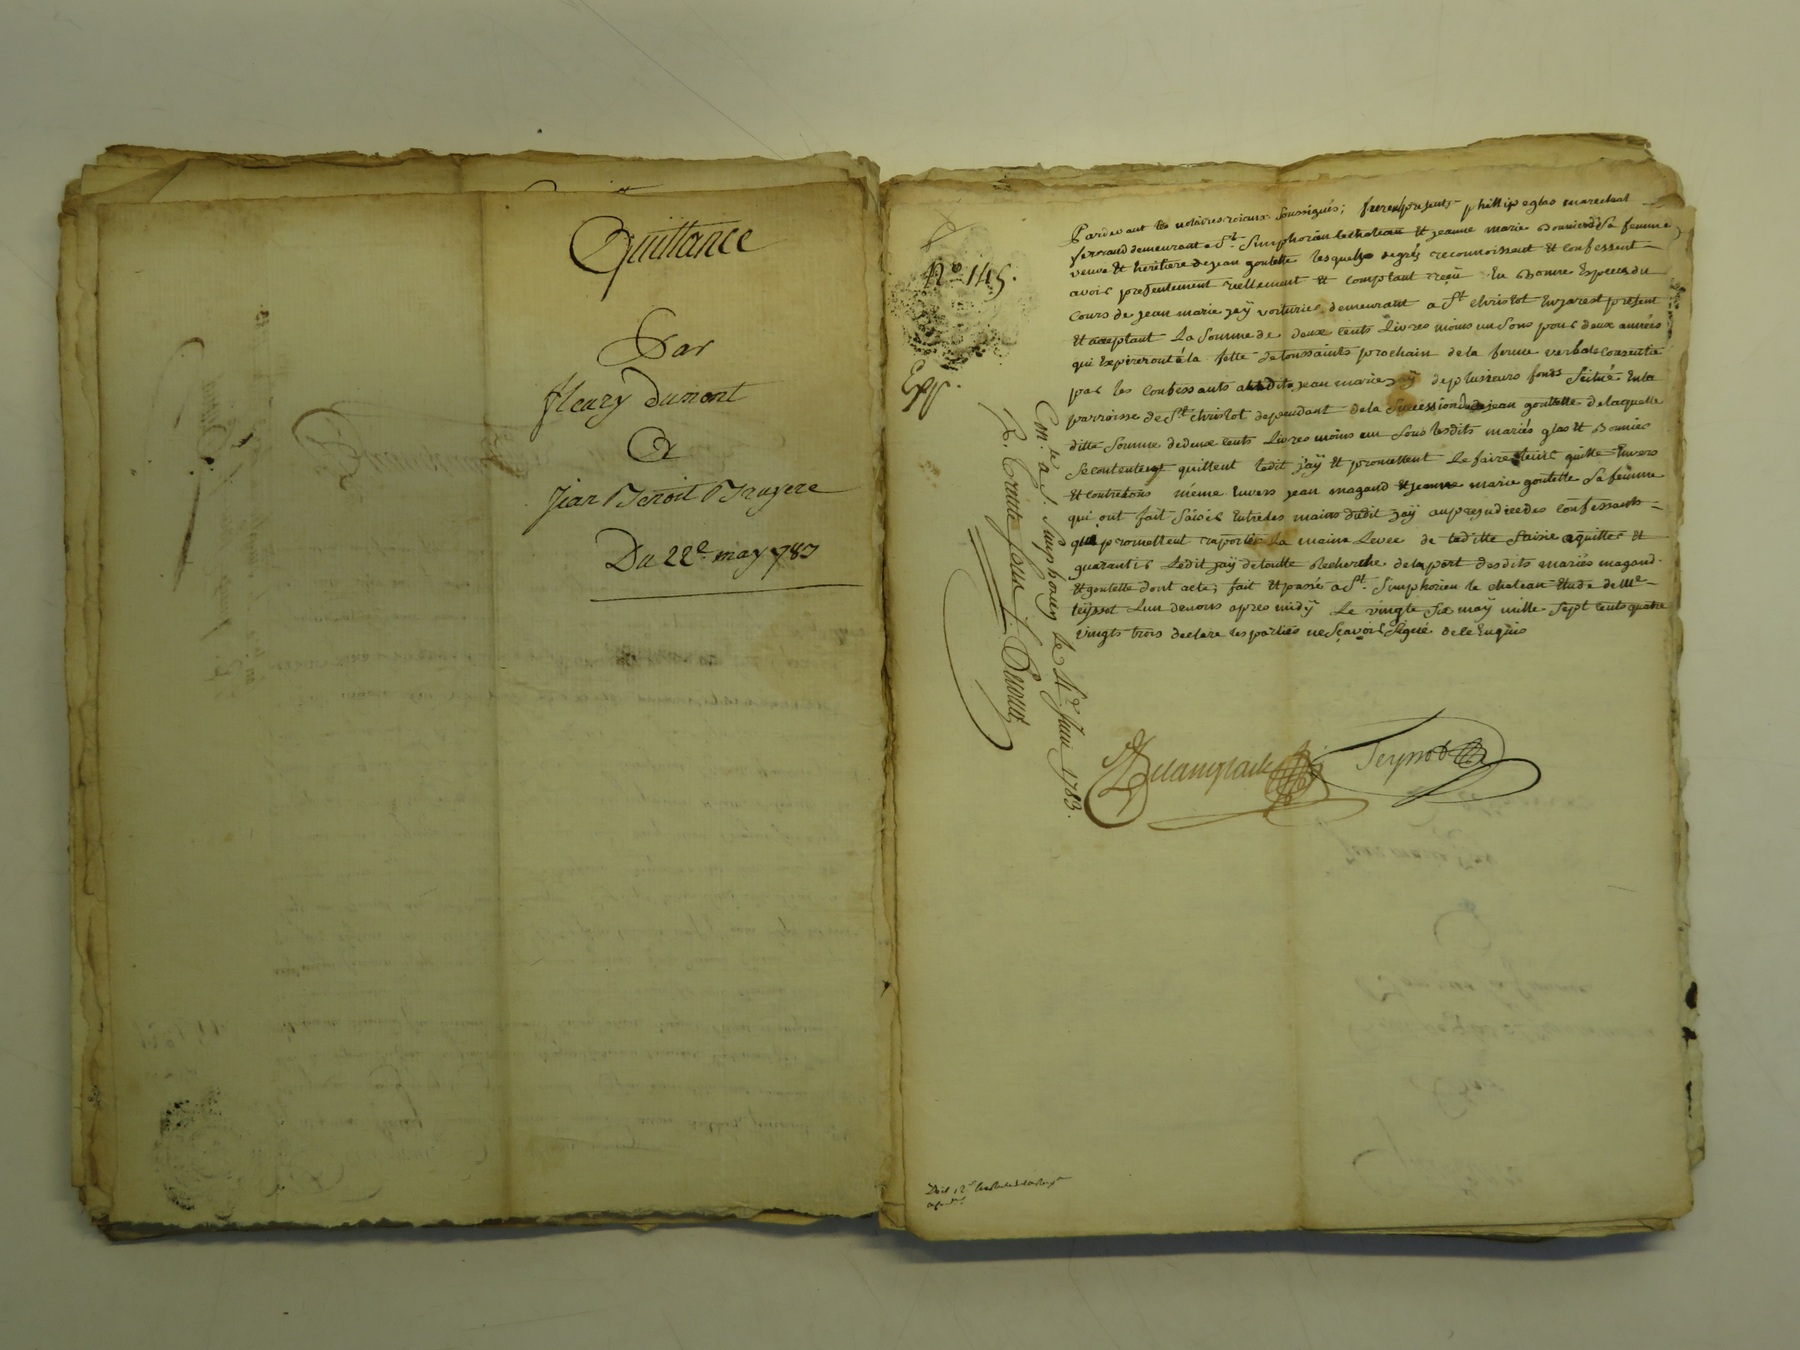 Quittance
Par
fleury Dumont
A
jean Benoit Bruyere
Du 22e may 1783
No 145.
Exp.
Pardevant les notaires roiaux soussignés; furent presents phillipe glas marechal
ferrand demeurant a St. Simphorien le chateau et jeanne marie Bonnier Sa femme
veuve et heritiere de jean goutelle lesquels de grés reconnoissent et confessent
avoir presentement reellement et comptant reçu En Bonne Espece du
Cours de jean marie jaÿ voiturier demeurant a St christot En jarest present
et acceptant La Somme de deux cents Livres moins un Sous pour deux années
qui Expireront a la fette de toussaints prochain de la ferme verbale Consentie
par les Confessants audit jean marie jaÿ de plusieurs fonds Scitué En la
parroisse de St christot dependant de la Succession de jean goutelle de laquelle
ditte Somme de deux cents Livres moins un Sous lesdits mariés glas et Bonnier
Se contentent quittent ledit jaÿ et promettent Le faire tenir quitte Envers
et contre tous même Envers jean magand et jeanne marie goutelle Sa femme
qui ont fait Saisir Entre les mains dudit jaÿ au prejudice des confessants
qui promettent raporter La main Levée de laditte Saisie aquitter et
guarantir Ledit jaÿ de toutte Recherche de la part desdits mariés magand
et goutelle dont acte, fait et passé a St. Simphorien le chateau Etude de Me
teyssot Lun de nous apres midÿ Le vingt Six maÿ mille Sept cents quatre
vingts trois declare les parties ne Sçavoir Signé de ce Enquis
Teyssot
Con.lé a S. Simphorien le 4e juin 1783.
R. trente sous